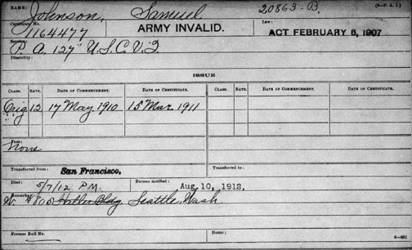 NAME: Johnson, Samuel 20863-B.
Certificate No. 1164477 ARMY INVALID. Law: ACT FEBRUARY 6, 1907
P A. 127" U.S.C.V.I
Disability:
ISSUES.
CLASS. RATE. DATE OF COMMENCEMENT. DATE OF CERTIFICATE. CLASS. RATE. DATE OF COMMENCEMENT. DATE OF CERTIFICATE.
Orig 12 17 May 1910 15 Mar 1911
None
Transferred from: San Francisco, Transferred to:
Died: 5/7/12 P.M. Bureau notified: Aug. 10, 1912,
Remarks: Bldg Seattle, Wash
Former Roll No. Home: